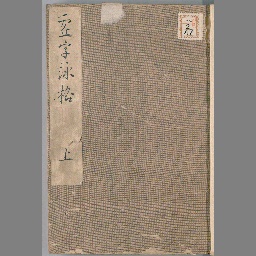 虚字詠格 上